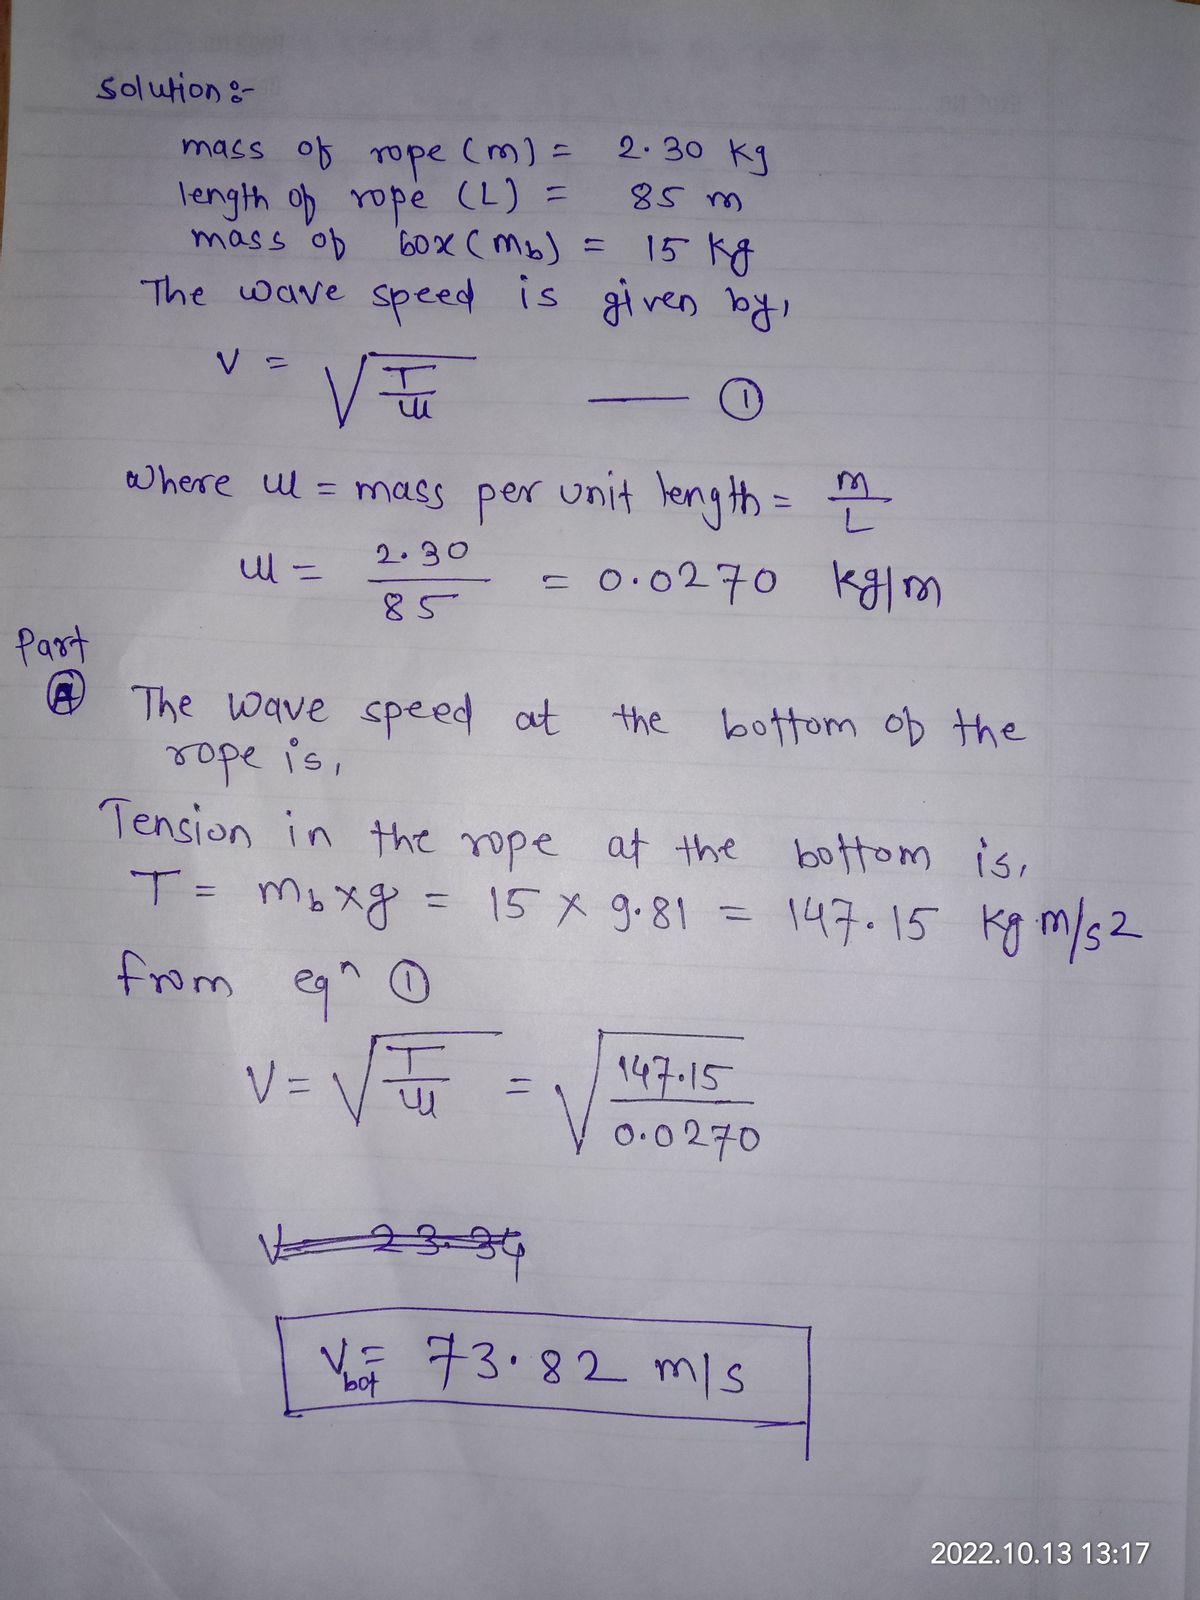 Solution :-
mass of rope (m) = 2.30 kg
length of rope (L) = 85 m
mass of box (mb) = 15 kg
The wave speed is given by,
V = √(T/μ) — ①
Where μ = mass per unit length = m/L
μ = 2.30/85 = 0.0270 kg/m
Part
Ⓐ The wave speed at the bottom of the
rope is,
Tension in the rope at the bottom is,
T = mb x g = 15 x 9.81 = 147.15 kg m/s2
from eqn ①
V = √(T/μ) = √(147.15/0.0270)
V = 23.34
Vbot = 73.82 m/s
2022.10.13 13:17